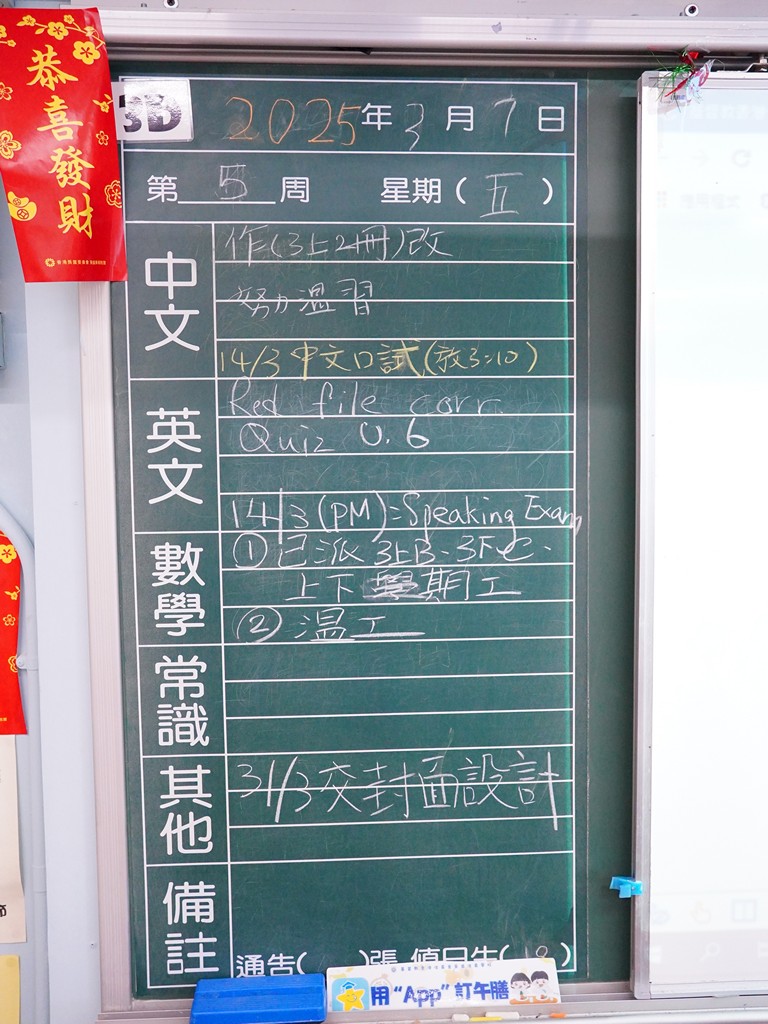 恭喜發財
3D
2025年3月7日
第5周 星期(五)
中文
作(3上2冊)改
努力溫習
14/3 中文口試(
英文
Red file corr.
Quiz U.6
14/3(PM)=Speaking Exam
數學
①已派3上B、3下C、
上下學期工
②溫工
常識
其他
31/3交封面設計
備註
通告( )張 值日生( )
用“App”訂午膳